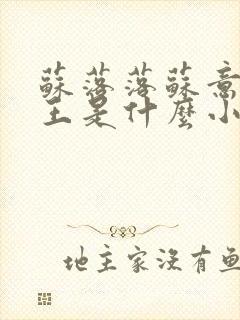 蘇落落蘇意
主是什麼小
地主家沒有魚